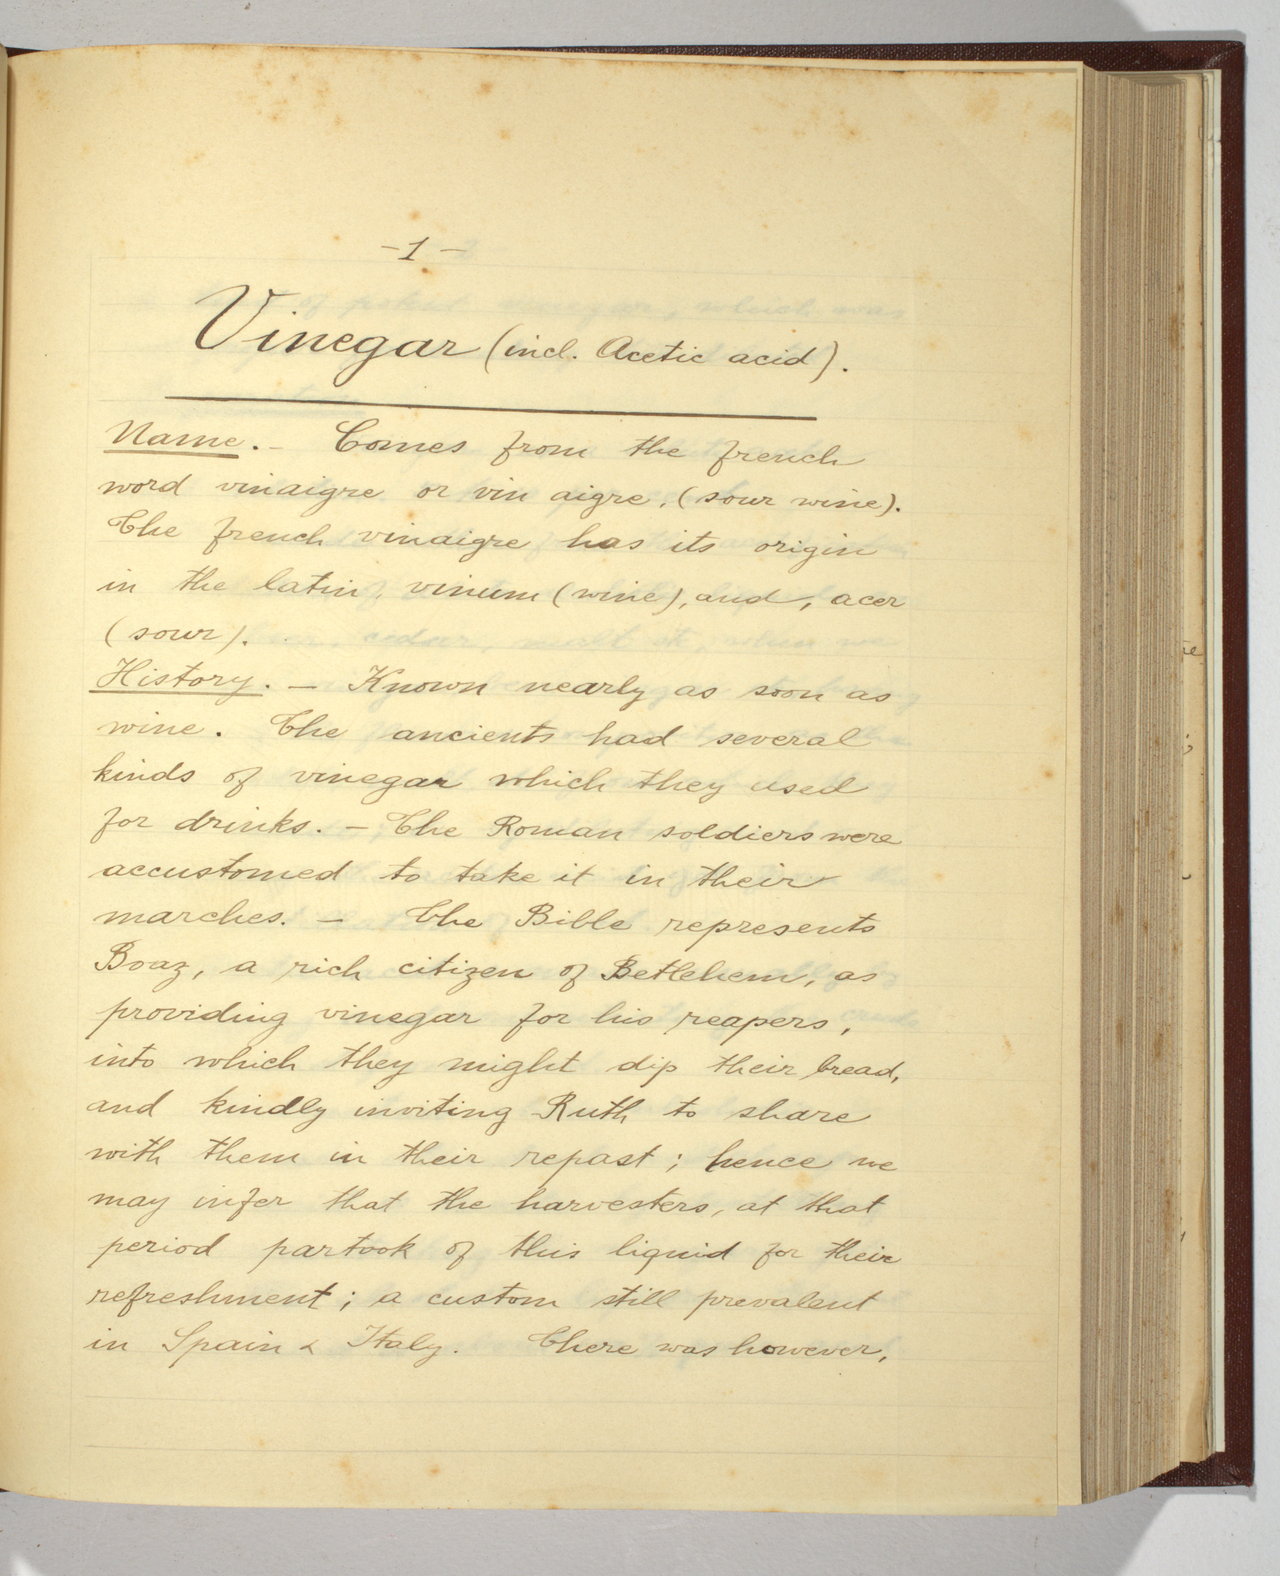 -1-
Vinegar (incl. Acetic acid).
Name. - Comes from the french
word vinaigre or vin aigre, (sour wine).
The french vinaigre has its origin
in the latin, vinum (wine), and, acer
(sour).
History. - Known nearly as soon as
wine. The ancients had several
kinds of vinegar which they used
for drinks. - The Roman soldiers were
accustomed to take it in their
marches. - The Bible represents
Boaz, a rich citizen of Betlehem, as
providing vinegar for his reapers,
into which they might dip their bread,
and kindly inviting Ruth to share
with them in their repast; hence we
may infer that the harvesters, at that
period partook of this liquid for their
refreshment; a custom still prevalent
in Spain & Italy. There was however,